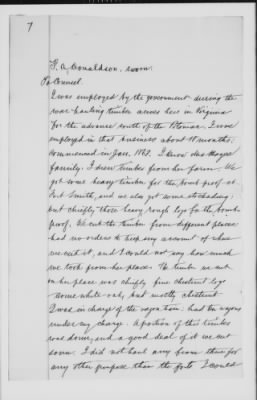 7
F. A. Donaldson, sworn.
By Counsel.
I was employed by the government during the
war hauling timber across here in Virginia
for the advance south of the Potomac. I was
employed in that business about 18 months.
Commenced in Jan, 1863. I know the
family. I drew timber from her farm. We
got some heavy timber for the bomb proof at
Fort Smith, and we also got some stockading;
but chiefly those heavy rough logs for the bomb-
proof. We cut the timber from different places
had no orders to keep any account of where
we cut it, and I could not say how much
we took from her place. The timber we cut
on her place was chiefly fine chestnut logs
some white oak, but mostly chestnut
I was in charge of the wagon train. had 60 wagons
under my charge. A portion of this timber
was down, and a good deal of it we cut
down. I did not haul any from there for
any other purpose than the forts. I could